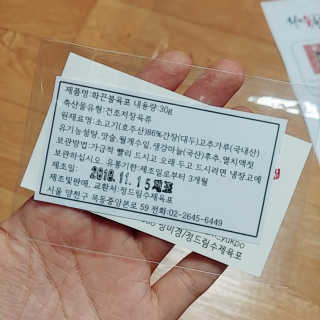 제품명:화끈불육포 내용량:30g
축산물유형:건조저장육류
원재료명:소고기(호주산)86%간장(대두)고추가루(국내산)
유기농설탕, 맛술,월계수잎, 생강마늘(국산)후추,멸치액젓
보관방법:가급적 빨리 드시고 오래 두고 드시려면 냉장고에
보관하십시오. 유통기한:제조일로부터 3개월
제조일 2018.11.15제조
제조및판매, 교환처:정드림수제육포
서울 양천구 목동중앙본로 59 전화:02-2645-6449
장미경/정드림수제육포